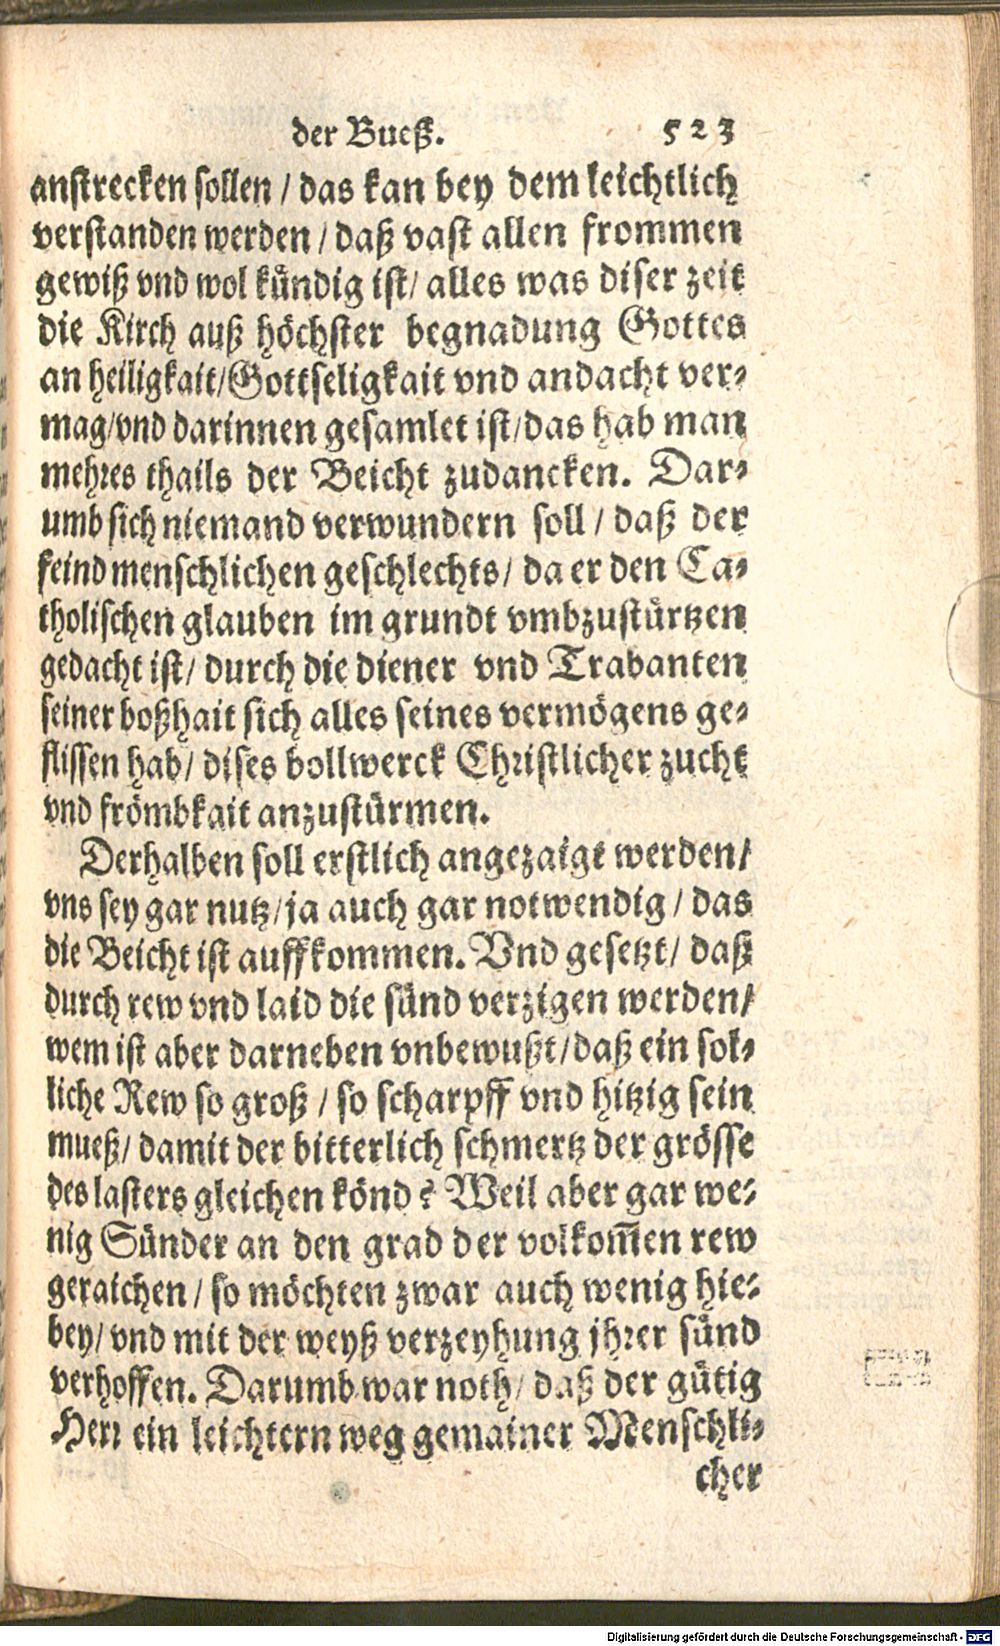 der Bueß. 523
anstrecken sollen / das kan bey dem leichtlich
verstanden werden / daß vast allen frommen
gewiß vnd wol kündig ist / alles was diser zeit
die Kirch auß höchster begnadung Gottes
an heiligkait / Gottseligkait vnd andacht ver-
mag / vnd darinnen gesamlet ist / das hab man
mehres thails der Beicht zudancken. Dar-
umb sich niemand verwundern soll / daß der
feind menschlichen geschlechts / da er den Ca-
tholischen glauben im grundt vmbzustürtzen
gedacht ist / durch die diener vnd Trabanten
seiner boßhait sich alles seines vermögens ge-
flissen hab / dises bollwerck Christlicher zucht
vnd frömbkait anzustürmen.
Derhalben soll erstlich angezaigt werden /
vns sey gar nutz / ja auch gar notwendig / das
die Beicht ist auffkommen. Vnd gesetzt / daß
durch rew vnd laid die sünd verzigen werden /
wem ist aber darneben vnbewußt / daß ein sol-
liche Rew so groß / so scharpff vnd hitzig sein
mueß / damit der bitterlich schmertz der grösse
des lasters gleichen könd? Weil aber gar we-
nig Sünder an den grad der volkom̃en rew
geraichen / so möchten zwar auch wenig hie-
bey / vnd mit der weyß verzeyhung jhrer sünd
verhoffen. Darumb war noth / daß der gütig
Herr ein leichtern weg gemainer Menschli-
cher
Digitalisierung gefördert durch die Deutsche Forschungsgemeinschaft - DFG